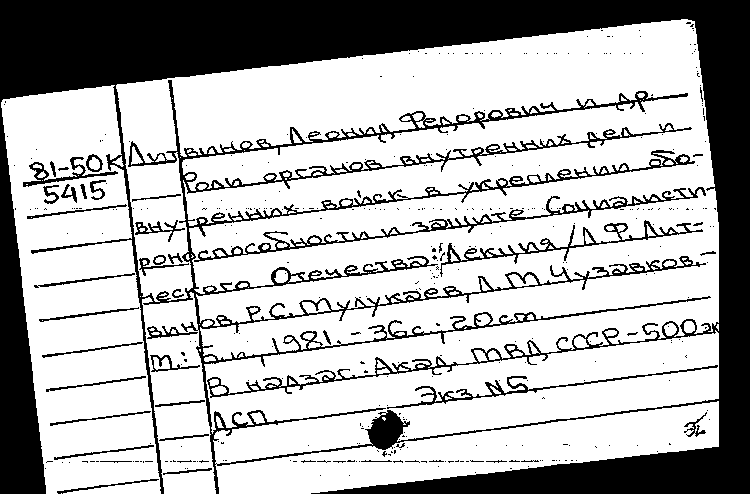 81-50К
5415
Литвинов, Леонид Федорович и др.
Роли органов внутренних дел и
внутренних войск в укреплении обо-
роноспособности и защите Социалисти-
ческого Отечества: Лекция / Л.Ф. Лит-
винов, Р.С. Мулукаев, Л.М. Чузавков.-
М.: Б.и., 1981. - 36с.; 20см.
В надзаг.: Акад. МВД СССР. - 500 эк
ДСП. Экз. №5.